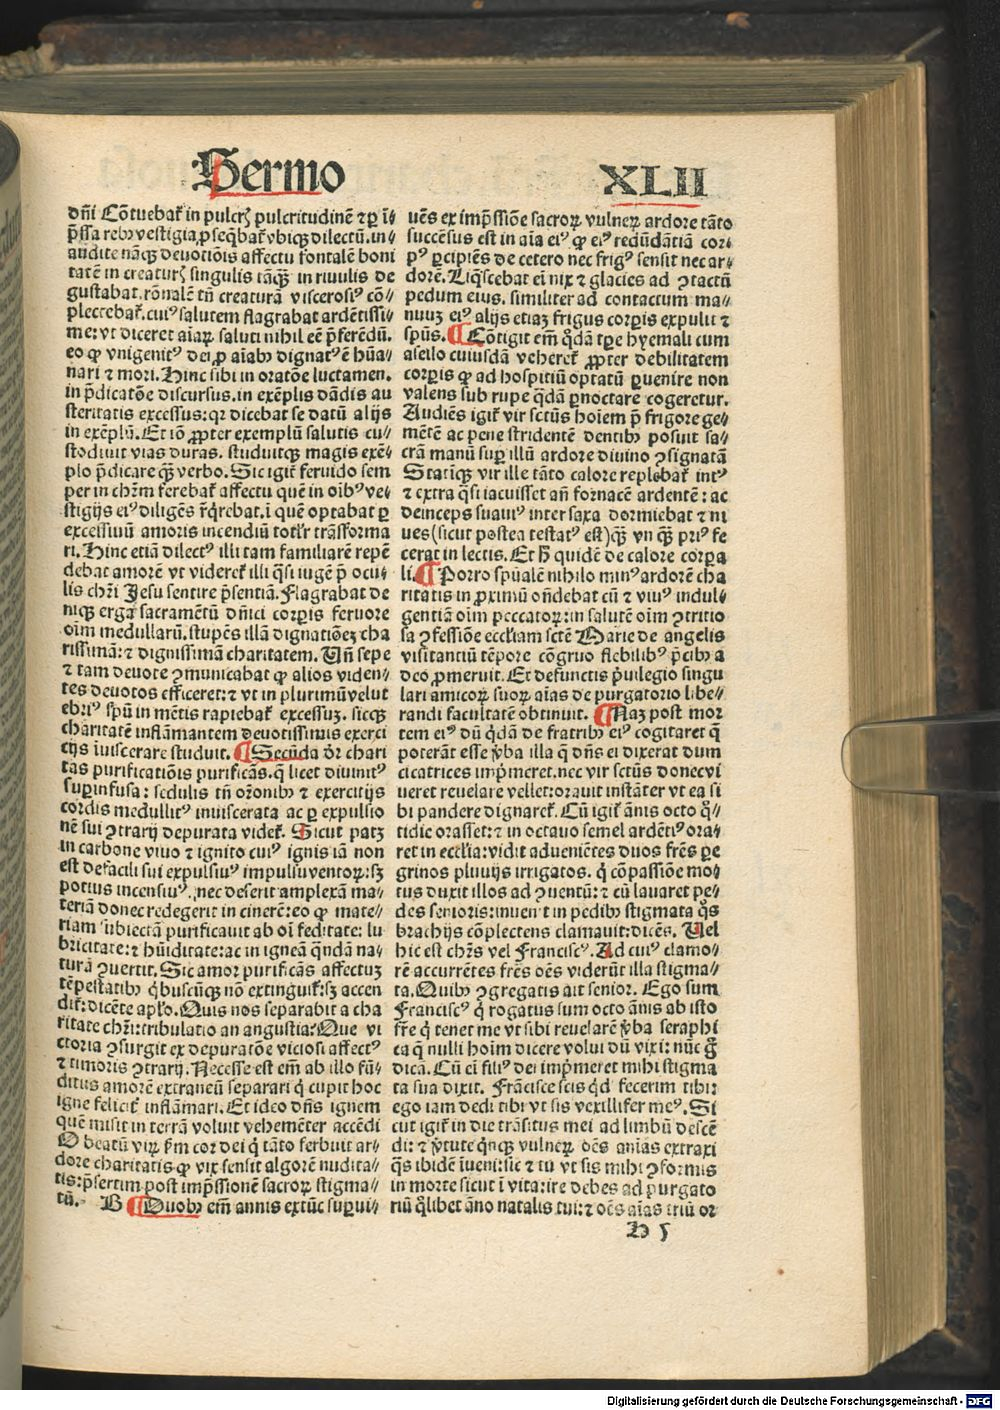 Sermo XLII
dñi Cõtuebat᷒ in pulcrꝭ pulcritudinē ⁊ ꝑ ī⸗
p̄ssa rebꝫ vestigia, ꝓseq̄bat᷒ vbiqꝫ dilectū. in⸗
audite nāqꝫ deuotiõis affectu fontalē boni
tatē in creaturꝭ singulis tāqꝫ in riuulis de
gustabat. rõnalē tñ creaturā viscerosiꝰ cõ⸗
plectebat᷒. cuiꝰ salutem flagrabat ardētissi⸗
me: vt diceret aīaꝝ saluti nihil eē p̄ferēdū.
eo ꝙ vnigenitꝰ dei ꝓ aīabꝫ dignatꝰ ē hūa⸗
nari ⁊ mori. Hinc sibi in oratõe luctamen.
in p̄dicatõe discursus. in exēplis dādis au
steritatis excessus: qꝛ dicebat se datū alijs
in exēplū. Et iõ ꝓpter exemplū salutis cu⸗
stodiuit vias duras. studuitqꝫ magis exē⸗
plo p̄dicare qꝫ verbo. Sic igit᷒ feruido sem
per in chr̄m ferebat᷒ affectu quē in oībꝰ ve⸗
stigijs eiꝰ diligēs r̄q̄rebat. ī quē optabat ꝑ
excessiuū amoris incendiū totl̓r trāsforma
ri. Hinc etiā dilectꝰ illi tam familiarē repē
debat amorē vt videret᷒ illi q̄si iugē p̄ ocu⸗
lis chr̄i Jesu sentire p̄sentiā. Flagrabat de
niqꝫ erga sacramētū dñici corpis feruore
oīm medullarū. stupēs illā dignatiõeꝫ cha
rissimā: ⁊ dignissimā charitatem. Uñ sepe
⁊ tam deuote ꝯmunicabat ꝙ alios viden⸗
tes deuotos efficeret: ⁊ vt in plurimū velut
ebriꝰ spū in mētis rapiebat᷒ excessuꝫ. sicqꝫ
charitatē inflāmantem deuotissimis exerci
cijs īuiscerare studuit. ¶ Secūda dr̄ chari
tas purificatiõis purificās. q̄ licet diuinitꝰ
suꝑinfusa: sedulis tñ or̄onibꝫ ⁊ exercitijs
cordis medullitꝰ inuiscerata ac ꝑ expulsio
nē sui ꝯtrarij depurata videt᷒. Sicut patꝫ
in carbone viuo ⁊ ignito cuiꝰ ignis iā non
est de facili sui expulsiuꝰ impulsu ventoꝝ: sꝫ
potius incensiuꝰ. nec deserit amplexā ma⸗
teriā donec redegerit in cinerē: eo ꝙ mate⸗
riam subiectā purificauit ab oī feditate: lu
bricitate: ⁊ hūiditate: ac in igneā q̄ndā na⸗
turā ꝯuertit. Sic amor purificās affectuꝫ
tēpestatibꝫ q̄buscūqꝫ nõ extinguit᷒: sꝫ accen
dit᷒: dicēte apl̓o. Quis nos separabit a cha
ritate chr̄i: tribulatio an angustia? Que vi
ctoria ꝯsurgit ex depuratõe viciosi affectꝰ
⁊ timoris ꝯtrarij. Necesse est em̄ ab illo fū⸗
ditus amorē extraneū separari q̇ cupit hoc
igne felicit᷒ inflāmari. Et ideo dñs ignem
quē misit in terrā voluit vehemēter accēdi
O beatū viꝝ ẜm cor dei q̇ tāto ferbuit ar⸗
dore charitatis ꝙ vix sensit algorē nudita⸗
tis: p̄sertim post imp̄ssionē sacroꝝ stigma⸗
tū. B ¶ Duobꝫ em̄ annis extūc suꝑui⸗
uēs ex imp̄ssiõe sacroꝝ vulneꝝ ardore tāto
succēsus est in aīa eiꝰ ꝙ eiꝰ redūdātiā cor⸗
pꝰ ꝑcipiēs de cetero nec frigꝰ sensit nec ar⸗
dorē. Liq̄scebat eī nix ⁊ glacies ad ꝯtactū
pedum eius. similiter ad contactum ma⸗
nuuꝫ eiꝰ alijs etiaꝫ frigus corpis expulit ⁊
spūs. ¶ Cõtigit em̄ q̇dā tꝑe hyemali cum
asello cuiusdā veheret᷒ ꝓpter debilitatem
corpis ꝙ ad hospitiū optatū ꝑuenire non
valens sub rupe q̇dā ꝑnoctare cogeretur.
Audiēs igit᷒ vir sctūs hoīem p̄ frigore ge⸗
mētē ac pene stridentē dentibꝫ posuit sa⸗
crā manū suꝑ illū ardore diuino ꝯsignatā
Statīqꝫ vir ille tāto calore replebat᷒ intꝰ
⁊ extra q̄si iacuisset añ fornacē ardentē: ac
deinceps suauiꝰ inter saxa dormiebat ⁊ ni
ues (sicut postea testatꝰ est) qꝫ vnqꝫ priꝰ fe
cerat in lectis. Et h̄ quidē de calore corpa
li. ¶ Porro spūalē nihilo minꝰ ardorē cha
ritatis in ꝓximū oñdebat cū ⁊ viuꝰ indul⸗
gentiā oīm peccatoꝝ: in salutē oīm ꝯtritio
sa ꝯfessiõe eccl̓iam sctē Marie de angelis
visitantiū tēpore cõgruo flebilibꝰ p̄cibꝫ a
deo ꝓmeruit. Et defunctis p̄uilegio singu
lari amicoꝝ suoꝝ aīas de purgatorio libe⸗
randi facultatē obtinuit. ¶ Naꝫ post mor
tem eiꝰ dū q̇dā de fratribꝫ eiꝰ cogitaret q̄
poterāt esse v̄ba illa q̄ dñs ei dixerat dum
cicatrices imp̄meret. nec vir sctūs donec vi
ueret reuelare vellet: orauit instāter vt ea si
bi pandere dignaret᷒. Cū igit᷒ ānis octo q̊⸗
tidie orasset: ⁊ in octauo semel ardētiꝰ ora⸗
ret in eccl̓ia: vidit aduenietes duos fr̄es ꝑe
grinos pluuijs irrigatos. q̇ cõpassiõe mo⸗
tus duxit illos ad ꝯuentū: ⁊ cū lauaret pe⸗
des senioris: inuenit in pedibꝫ stigmata q̄s
brachijs cõplectens clamauit: dicēs. Uel
hic est chr̄s vel Franciscꝰ. Ad cuiꝰ clamo⸗
rē accurrētes fr̄es oēs viderūt illa stigma⸗
ta. Quibꝫ ꝯgregatis ait senior. Ego sum
Franciscꝰ q̇ rogatus sum octo ānis ab isto
fr̄e q̇ tenet me vt sibi reuelarē v̄ba seraphi
ca q̄ nulli hoīm dicere volui dū vixi: nūc q̊
dicā. Cū ei filiꝰ dei imp̄meret mihi stigma
ta sua dixit. Frācisce scis q̇d fecerim tibi:
ego iam dedi tibi vt sis vexillifer meꝰ. Si
cut igit᷒ in die trāsitus mei ad limbū descē
di: ⁊ v̄tute q̇nqꝫ vulneꝝ oēs aīas extraxi
q̄s ibidē īueni: sic ⁊ tu vt sis mihi ꝯformis
in morte sicut ī vita: ire debes ad purgato
riū q̊libet āno natalis tui: ⁊ oēs aīas triū or
H 5
Digitalisierung gefördert durch die Deutsche Forschungsgemeinschaft - DFG